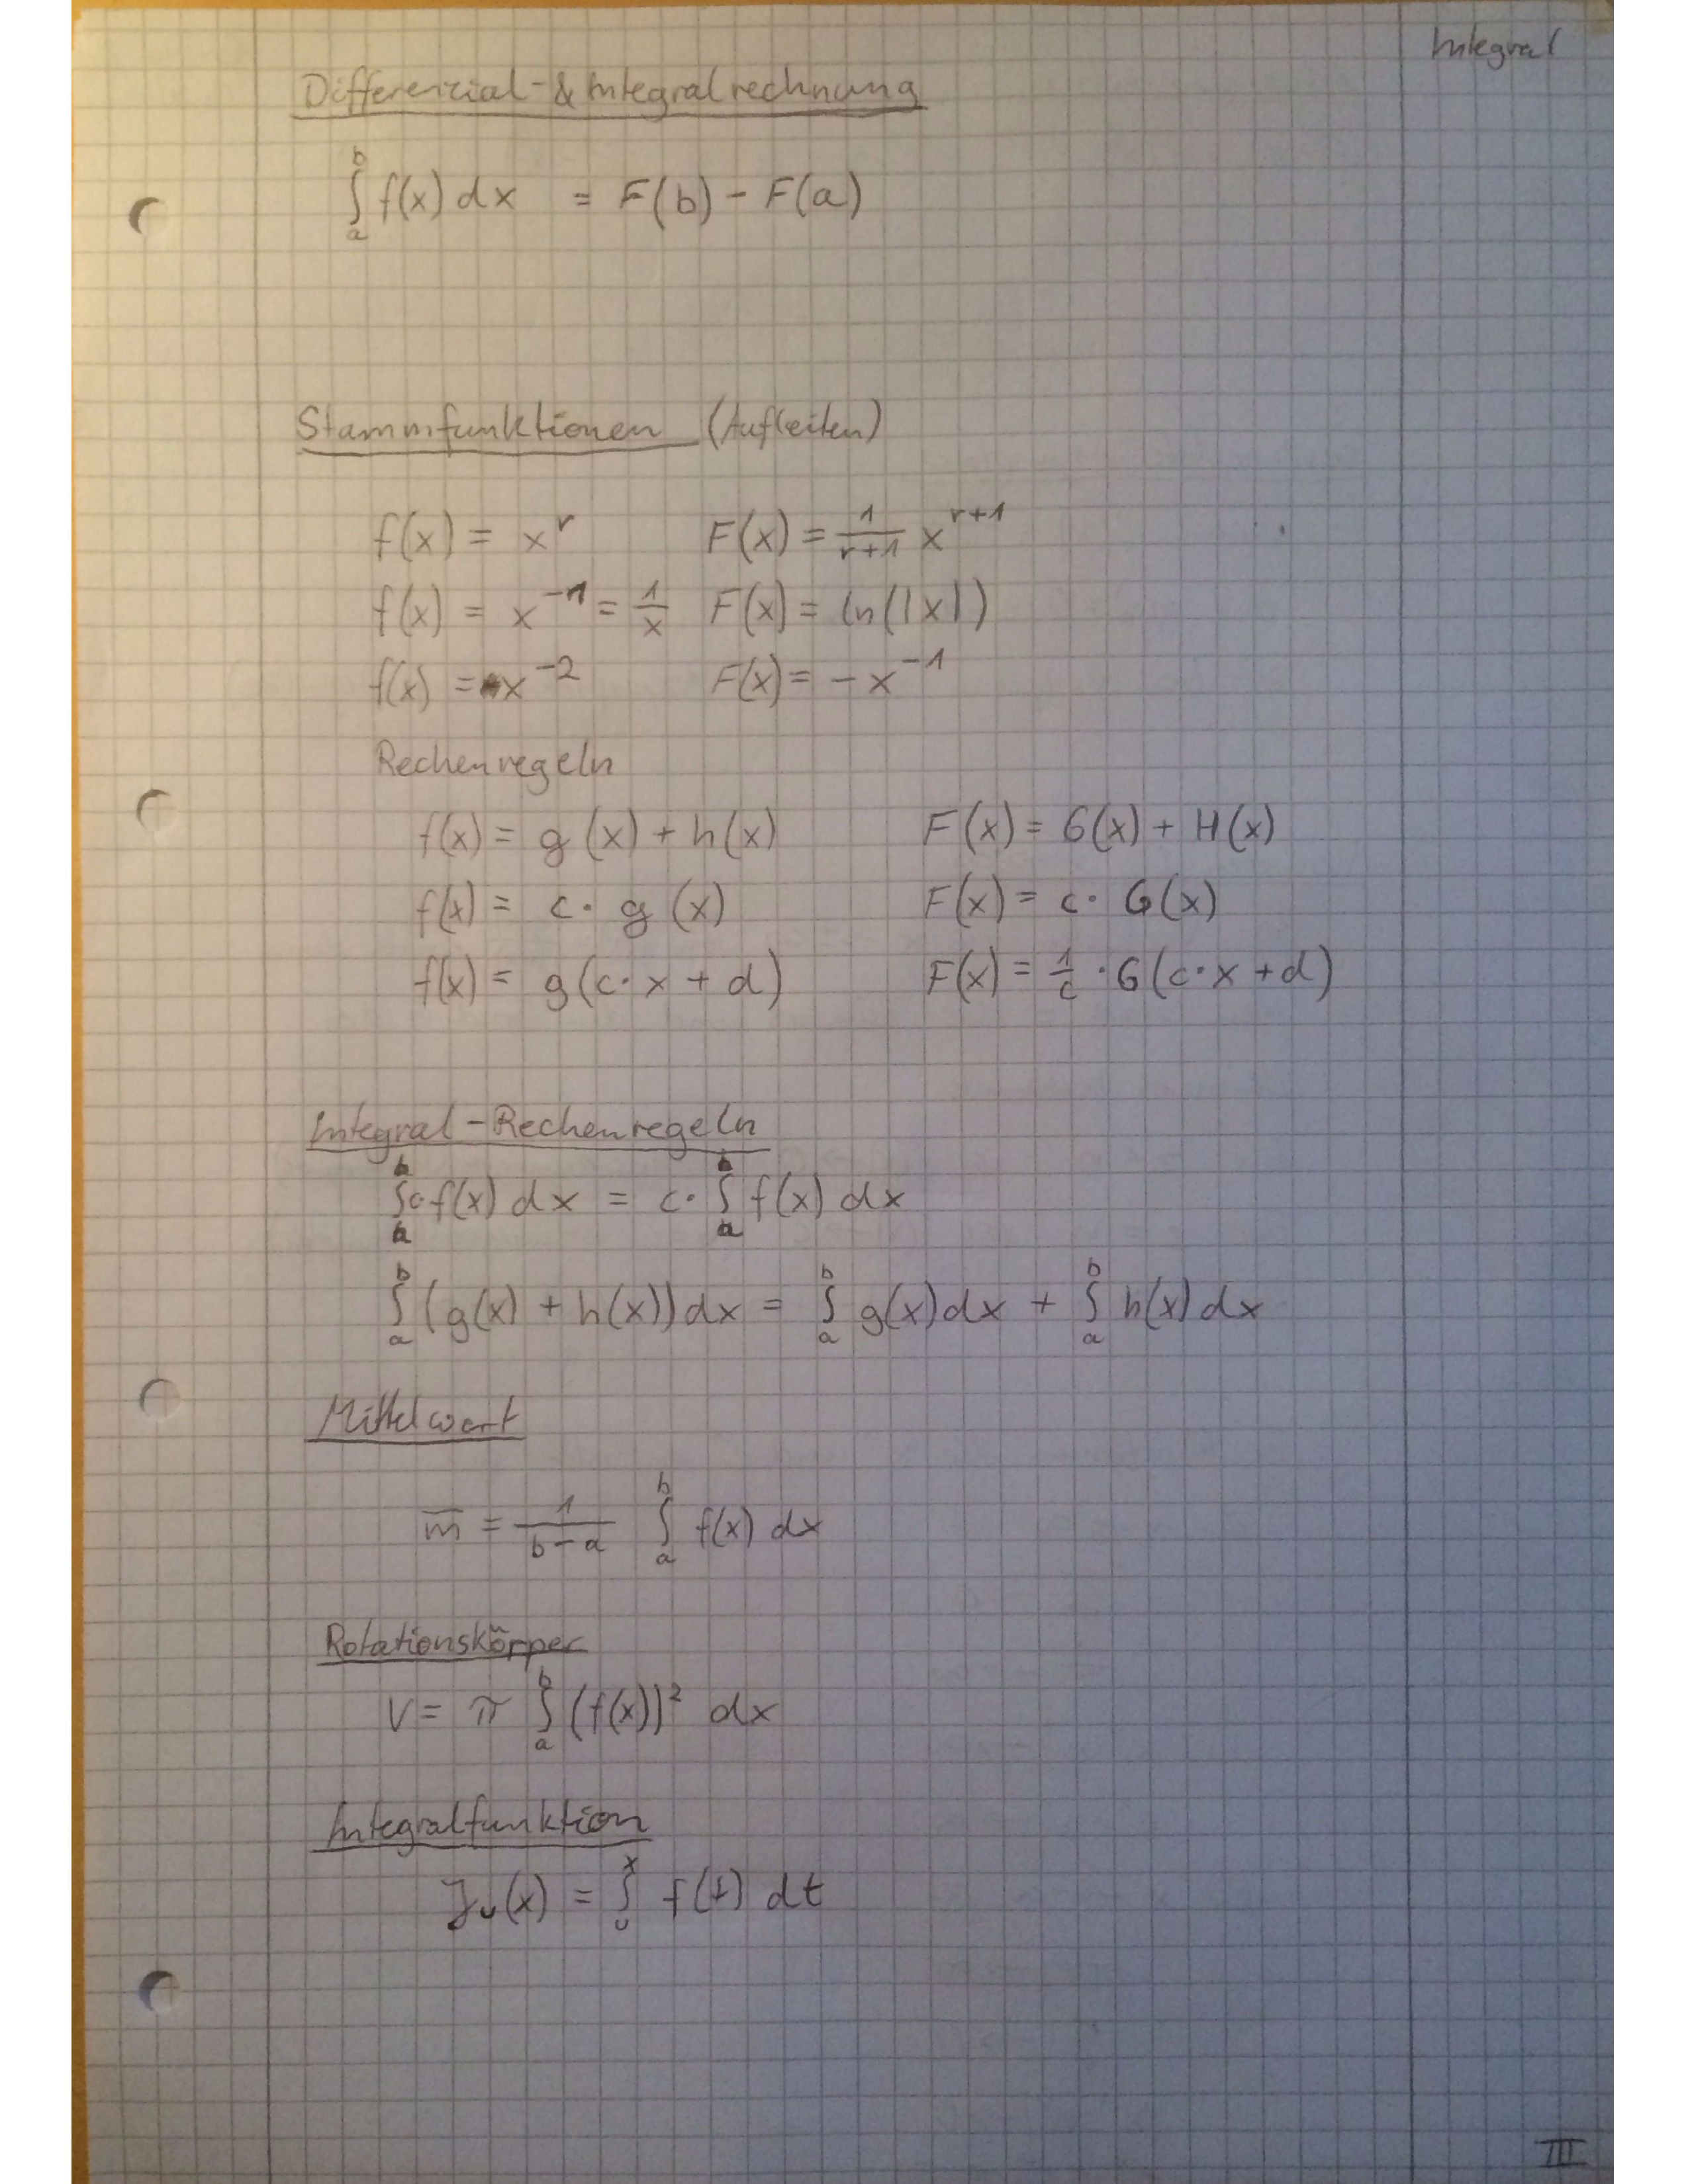 Integral
Differenzial-&Integralrechnung
∫_a^b f(x) dx = F(b) - F(a)
Stammfunktionen (Aufleiten)
f(x) = x^r F(x) = 1/(r+1) x^(r+1)
f(x) = x^(-1) = 1/x F(x) = ln(|x|)
f(x) = x^(-2) F(x) = -x^(-1)
Rechenregeln
f(x) = g(x) + h(x) F(x) = G(x) + H(x)
f(x) = c · g(x) F(x) = c · G(x)
f(x) = g(c·x + d) F(x) = 1/c · G(c·x + d)
Integral-Rechenregeln
∫_a^b c·f(x) dx = c· ∫_a^b f(x) dx
∫_a^b (g(x) + h(x)) dx = ∫_a^b g(x) dx + ∫_a^b h(x) dx
Mittelwert
m̅ = 1/(b-a) ∫_a^b f(x) dx
Rotationskörper
V = π ∫_a^b (f(x))² dx
Integralfunktion
J_u(x) = ∫_u^x f(t) dt
III